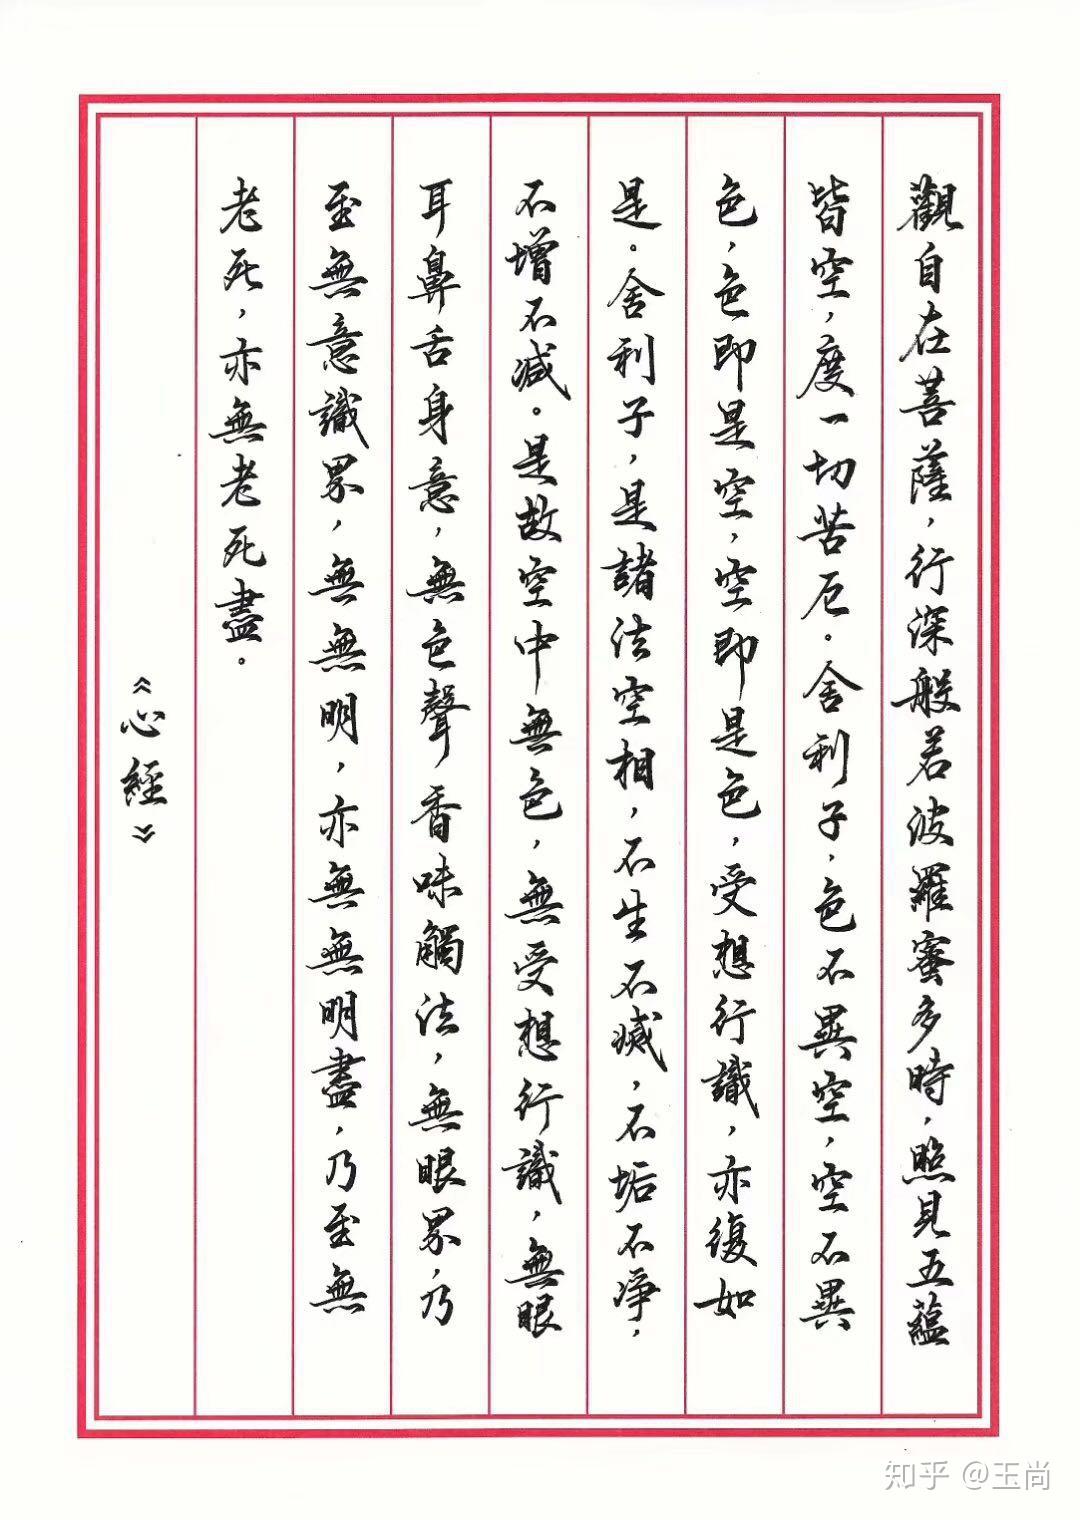 觀自在菩薩，行深般若波羅蜜多時，照見五蘊
皆空，度一切苦厄。舍利子，色不異空，空不異
色，色即是空，空即是色，受想行識，亦復如
是。舍利子，是諸法空相，不生不滅，不垢不淨，
不增不減。是故空中無色，無受想行識，無眼
耳鼻舌身意，無色聲香味觸法，無眼界，乃
至無意識界，無無明，亦無無明盡，乃至無
老死，亦無老死盡。
《心經》
知乎 @玉尚